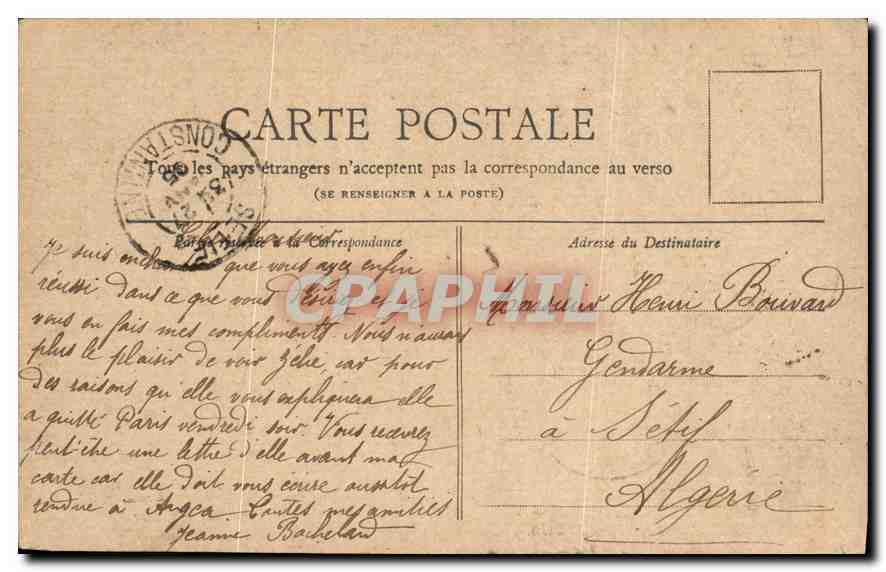 CARTE POSTALE
Tous les pays étrangers n'acceptent pas la correspondance au verso
(SE RENSEIGNER A LA POSTE)
CONSTANTINE
SÉTIF
Partie réservée à la Correspondance
Adresse du Destinataire
Cher Monsieur
Je suis que vous ayez enfin
réussi dans ce que vous et je
vous en fais mes compliments. Nous n'aurons
plus le plaisir de voir Zélie, car pour
des raisons qu'elle vous expliquera elle
a quitté Paris vendredi soir. Vous recevrez
peut-être une lettre d'elle avant ma
carte car elle doit vous écrire aussitôt
rendue à Toutes mes amitiés
Jeanne Bachelard
Monsieur Henri Bouvard
Gendarme
à Sétif
Algérie
CPAPHIL